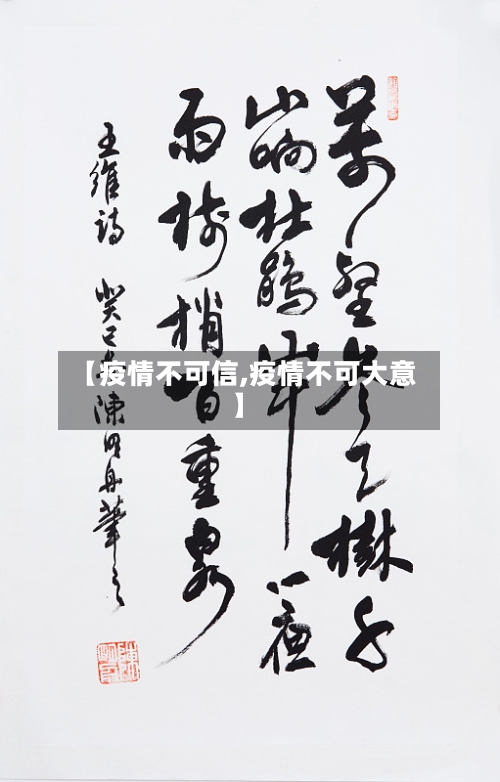 萬壑參天樹千
山响杜鵑中一夜
雨樹梢百重泉
王維詩 癸巳 陳
【疫情不可信,疫情不可大意
】